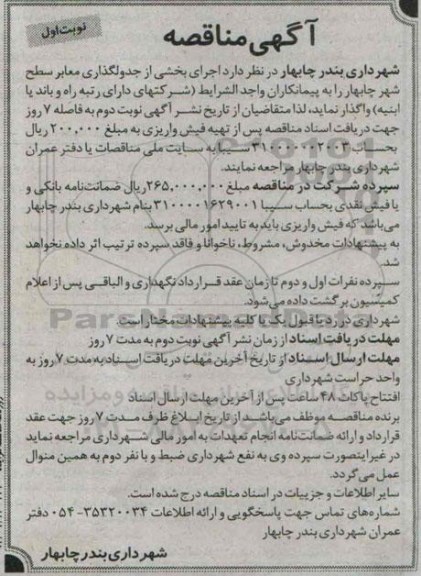 نوبت اول
آگهی مناقصه
شهرداری بندر چابهار در نظر دارد اجرای بخشی از جدولگذاری معابر سطح
شهر چابهار را به پیمانکاران واجد الشرایط (شرکتهای دارای رتبه راه و باند یا
ابنیه) واگذار نماید، لذا متقاضیان از تاریخ نشر آگهی نوبت دوم به فاصله ۷ روز
جهت دریافت اسناد مناقصه پس از تهیه فیش واریزی به مبلغ ۲۰۰,۰۰۰ ریال
بحساب سیبا به سایت ملی مناقصات یا دفتر عمران
شهرداری بندر چابهار مراجعه نمایند.
سپرده شرکت در مناقصه مبلغ ۲۶۵,۰۰۰,۰۰۰ ریال ضمانت‌نامه بانکی و
یا فیش نقدی بحساب سیبا ۳۱۰۰۰۰۱۶۲۹۰۰۱ بنام شهرداری بندر چابهار
می‌باشد که فیش واریزی باید به تایید امور مالی برسد.
به پیشنهادات مخدوش، مشروط، ناخوانا و فاقد سپرده ترتیب اثر داده نخواهد
شد.
سپرده نفرات اول و دوم تا زمان عقد قرارداد نگهداری و الباقی پس از اعلام
کمیسیون برگشت داده می‌شود.
شهرداری در رد یا قبول یک یا کلیه پیشنهادات مختار است.
مهلت دریافت اسناد از زمان نشر آگهی نوبت دوم به مدت ۷ روز
مهلت ارسال اسناد از تاریخ آخرین مهلت دریافت اسناد به مدت ۷ روز به
واحد حراست شهرداری
افتتاح پاکات ۴۸ ساعت پس از آخرین مهلت ارسال اسناد
برنده مناقصه موظف می‌باشد از تاریخ ابلاغ ظرف مدت ۷ روز جهت عقد
قرارداد و ارائه ضمانت‌نامه انجام تعهدات به امور مالی شهرداری مراجعه نماید
در غیر اینصورت سپرده وی به نفع شهرداری ضبط و با نفر دوم به همین منوال
عمل می‌گردد.
سایر اطلاعات و جزییات در اسناد مناقصه درج شده است.
شماره‌های تماس جهت پاسخگویی و ارائه اطلاعات ۳۵۳۲۰۰۳۴-۰۵۴ دفتر
عمران شهرداری بندر چابهار
شهرداری بندر چابهار
ParsNamadData